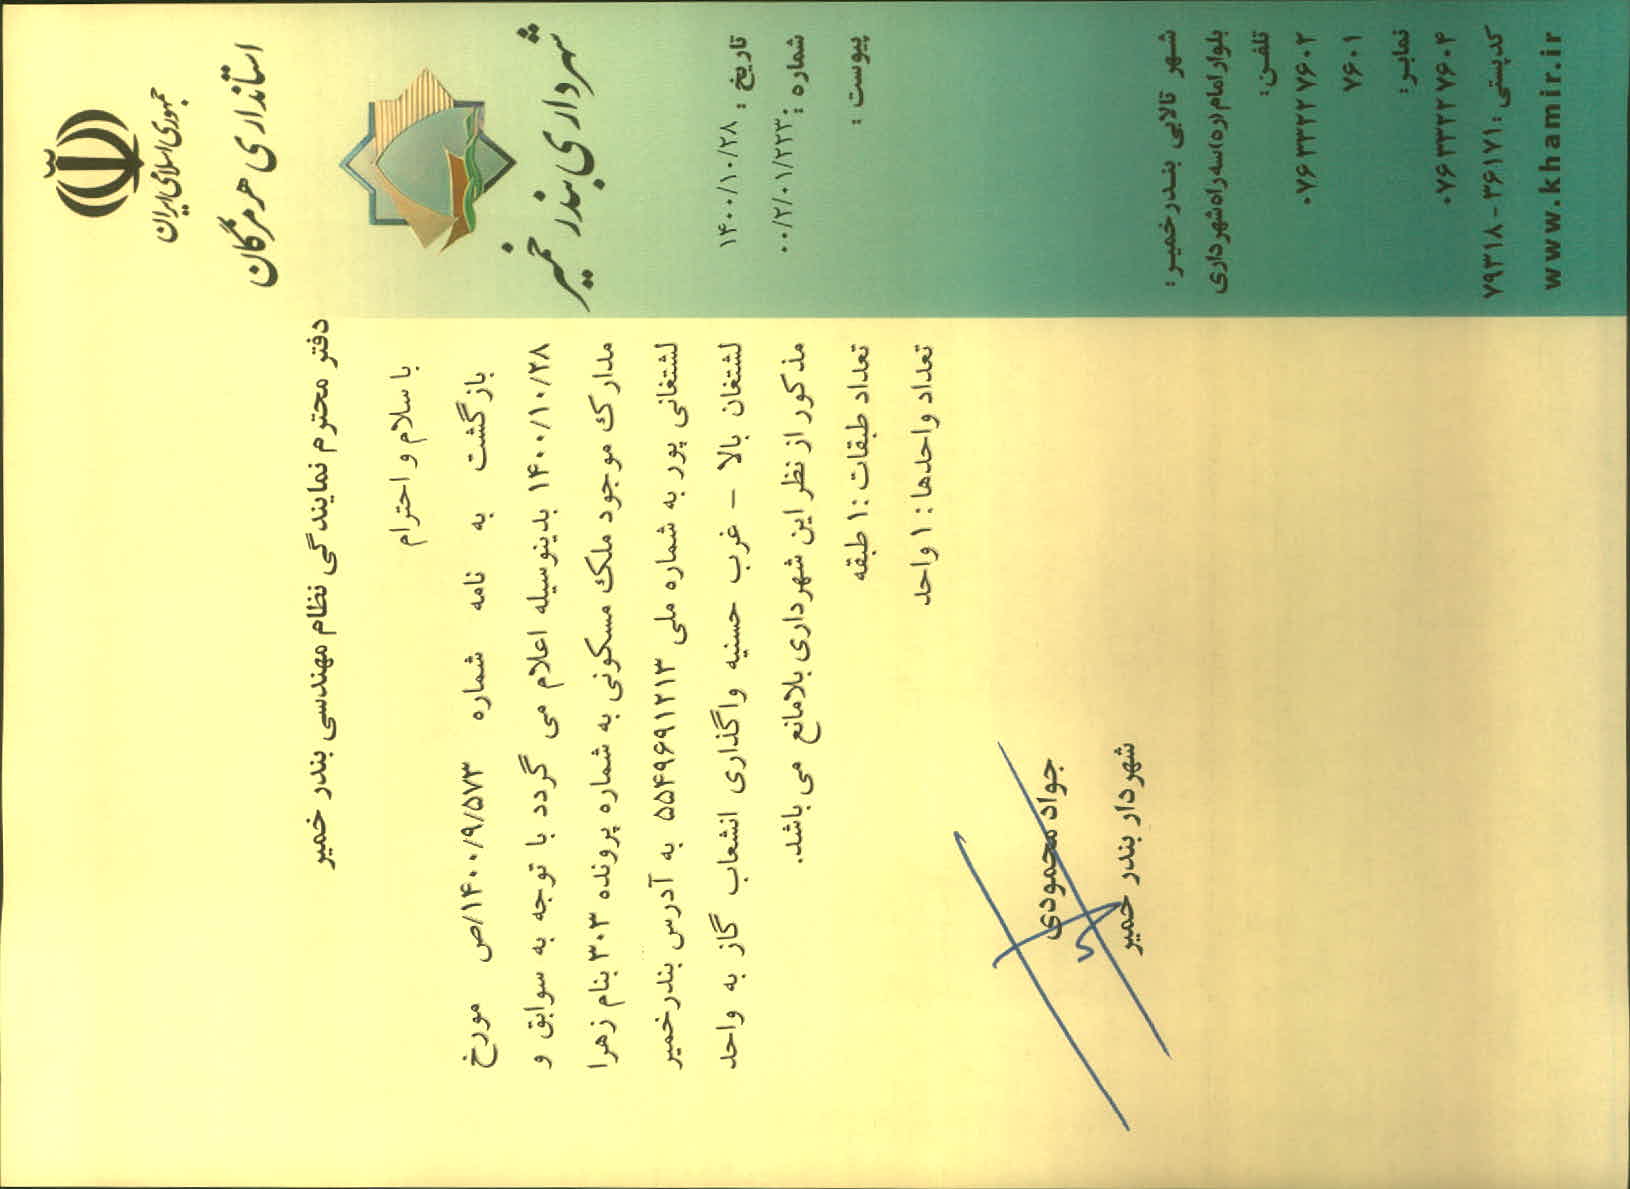 جمهوری اسلامی ایران
استانداری هرمزگان
شهرداری بندر خمیر
تاریخ : ۱۴۰۰/۱۰/۲۸
شماره : ۰۰/۲/۰۱/۲۳۳۰
پیوست :
دفتر محترم نمایندگی نظام مهندسی بندر خمیر
با سلام و احترام
بازگشت به نامه شماره ۱۴۰۰/۹/۵۷۳/ص مورخ
۱۴۰۰/۱۰/۲۸ بدینوسیله اعلام می گردد با توجه به سوابق و
مدارک موجود ملک مسکونی به شماره پرونده ۳۰۳ بنام زهرا
لشتغانی پور به شماره ملی ۵۵۴۹۶۹۱۲۱۳ به آدرس بندرخمیر
لشتغان بالا – غرب حسنیه واگذاری انشعاب گاز به واحد
مذکور از نظر این شهرداری بلامانع می باشد.
تعداد طبقات : ۱ طبقه
تعداد واحدها : ۱ واحد
جواد محمودی
شهردار بندر خمیر
شهر تالابی بندرخمیر:
بلوار امام(ره)سه راه شهرداری
تلفن:
۰۷۶ ۳۳۲۲ ۷۶۰۲
۷۶۰۱
نمابر:
۰۷۶ ۳۳۲۲ ۷۶۰۴
کدپستی : ۳۶۱۷۱ - ۷۹۳۱۸
www.khamir.ir